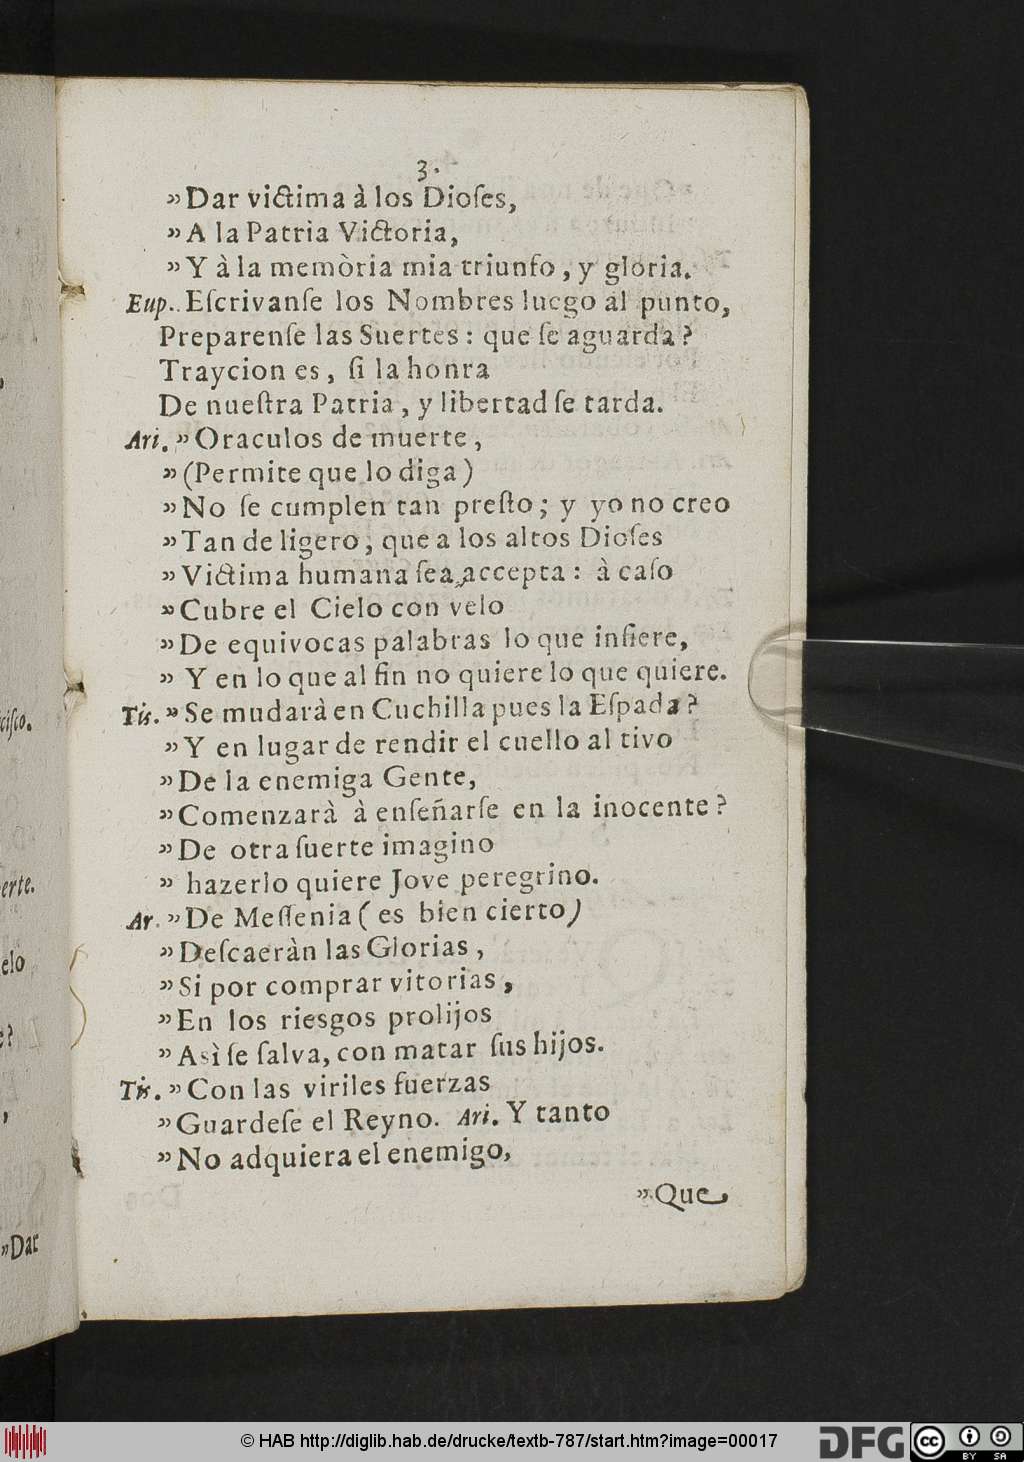 3.
”Dar victima à los Dioſes,
”A la Patria Victoria,
”Y à la memòria mia triunfo, y gloria.
Eup. Eſcrivanſe los Nombres luego al punto,
Preparenſe las Suertes: que ſe aguarda?
Traycion es, ſi la honra
De nueſtra Patria, y libertad ſe tarda.
Ari. ”Oraculos de muerte,
”(Permite que lo diga)
”No ſe cumplen tan preſto; y yo no creo
”Tan de ligero, que a los altos Dioſes
”Victima humana ſea accepta: à caſo
”Cubre el Cielo con velo
”De equivocas palabras lo que inſiere,
” Y en lo que al fin no quiere lo que quiere.
Tis. ”Se mudarà en Cuchilla pues la Eſpada?
”Y en lugar de rendir el cuello altivo
”De la enemiga Gente,
”Comenzarà à enſeñarſe en la inocente?
”De otra ſuerte imagino
” hazerlo quiere Jove peregrino.
Ar. ”De Meſſenia (es bien cierto)
”Deſcaeràn las Glorias,
”Si por comprar vitorias,
”En los riesgos prolijos
”Asì ſe ſalva, con matar ſus hijos.
Tis. ”Con las viriles fuerzas
”Guardeſe el Reyno. Ari. Y tanto
”No adquiera el enemigo,
”Que
ciſco.
erte.
elo
e?
,
”Dar
© HAB http://diglib.hab.de/drucke/textb-787/start.htm?image=00017
DFG
cc
BY SA